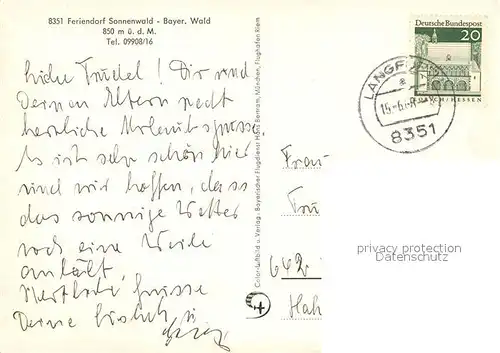 8351 Feriendorf Sonnenwald - Bayer. Wald
850 m ü. d. M.
Tel. 09908/16
Trudel! Dir und
Deinen Eltern recht
herzliche Urlaubsgrüsse.
Es ist sehr schön hier
und wir hoffen, dass
das sonnige Wetter
noch eine Weile
anhält.
Herzliche Grüsse
Deine
Color-Luftbild u. Verlag: Bayerischer Flugdienst Hans Bertram, München, Flughafen Riem
Deutsche Bundespost
20
LORSCH/HESSEN
LANGF
15.-6.
8351
Frau
Tru
642
Hal
privacy protection
Datenschutz